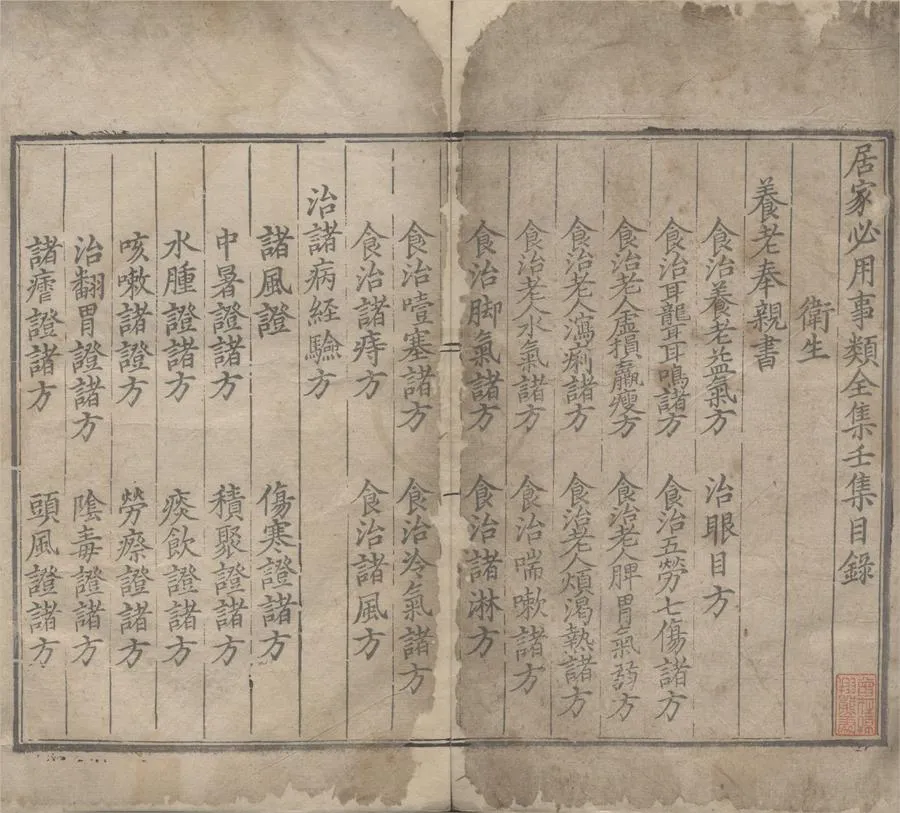 居家必用事類全集壬集目錄
衛生
養老奉親書
食治養老益氣方 治眼目方
食治耳聾耳鳴諸方 食治五勞七傷諸方
食治老人虛損羸瘦方 食治老人脾胃氣弱方
食治老人瀉痢諸方 食治老人煩渴熱諸方
食治老人水氣諸方 食治喘嗽諸方
食治脚氣諸方 食治諸淋方
食治噎塞諸方 食治冷氣諸方
食治諸痔方 食治諸風方
治諸病経驗方
諸風證 傷寒證諸方
中暑證諸方 積聚證諸方
水腫證諸方 痰飲證諸方
咳嗽諸證方 勞瘵證諸方
治翻胃證諸方 陰毒證諸方
諸瘧證諸方 頭風證諸方